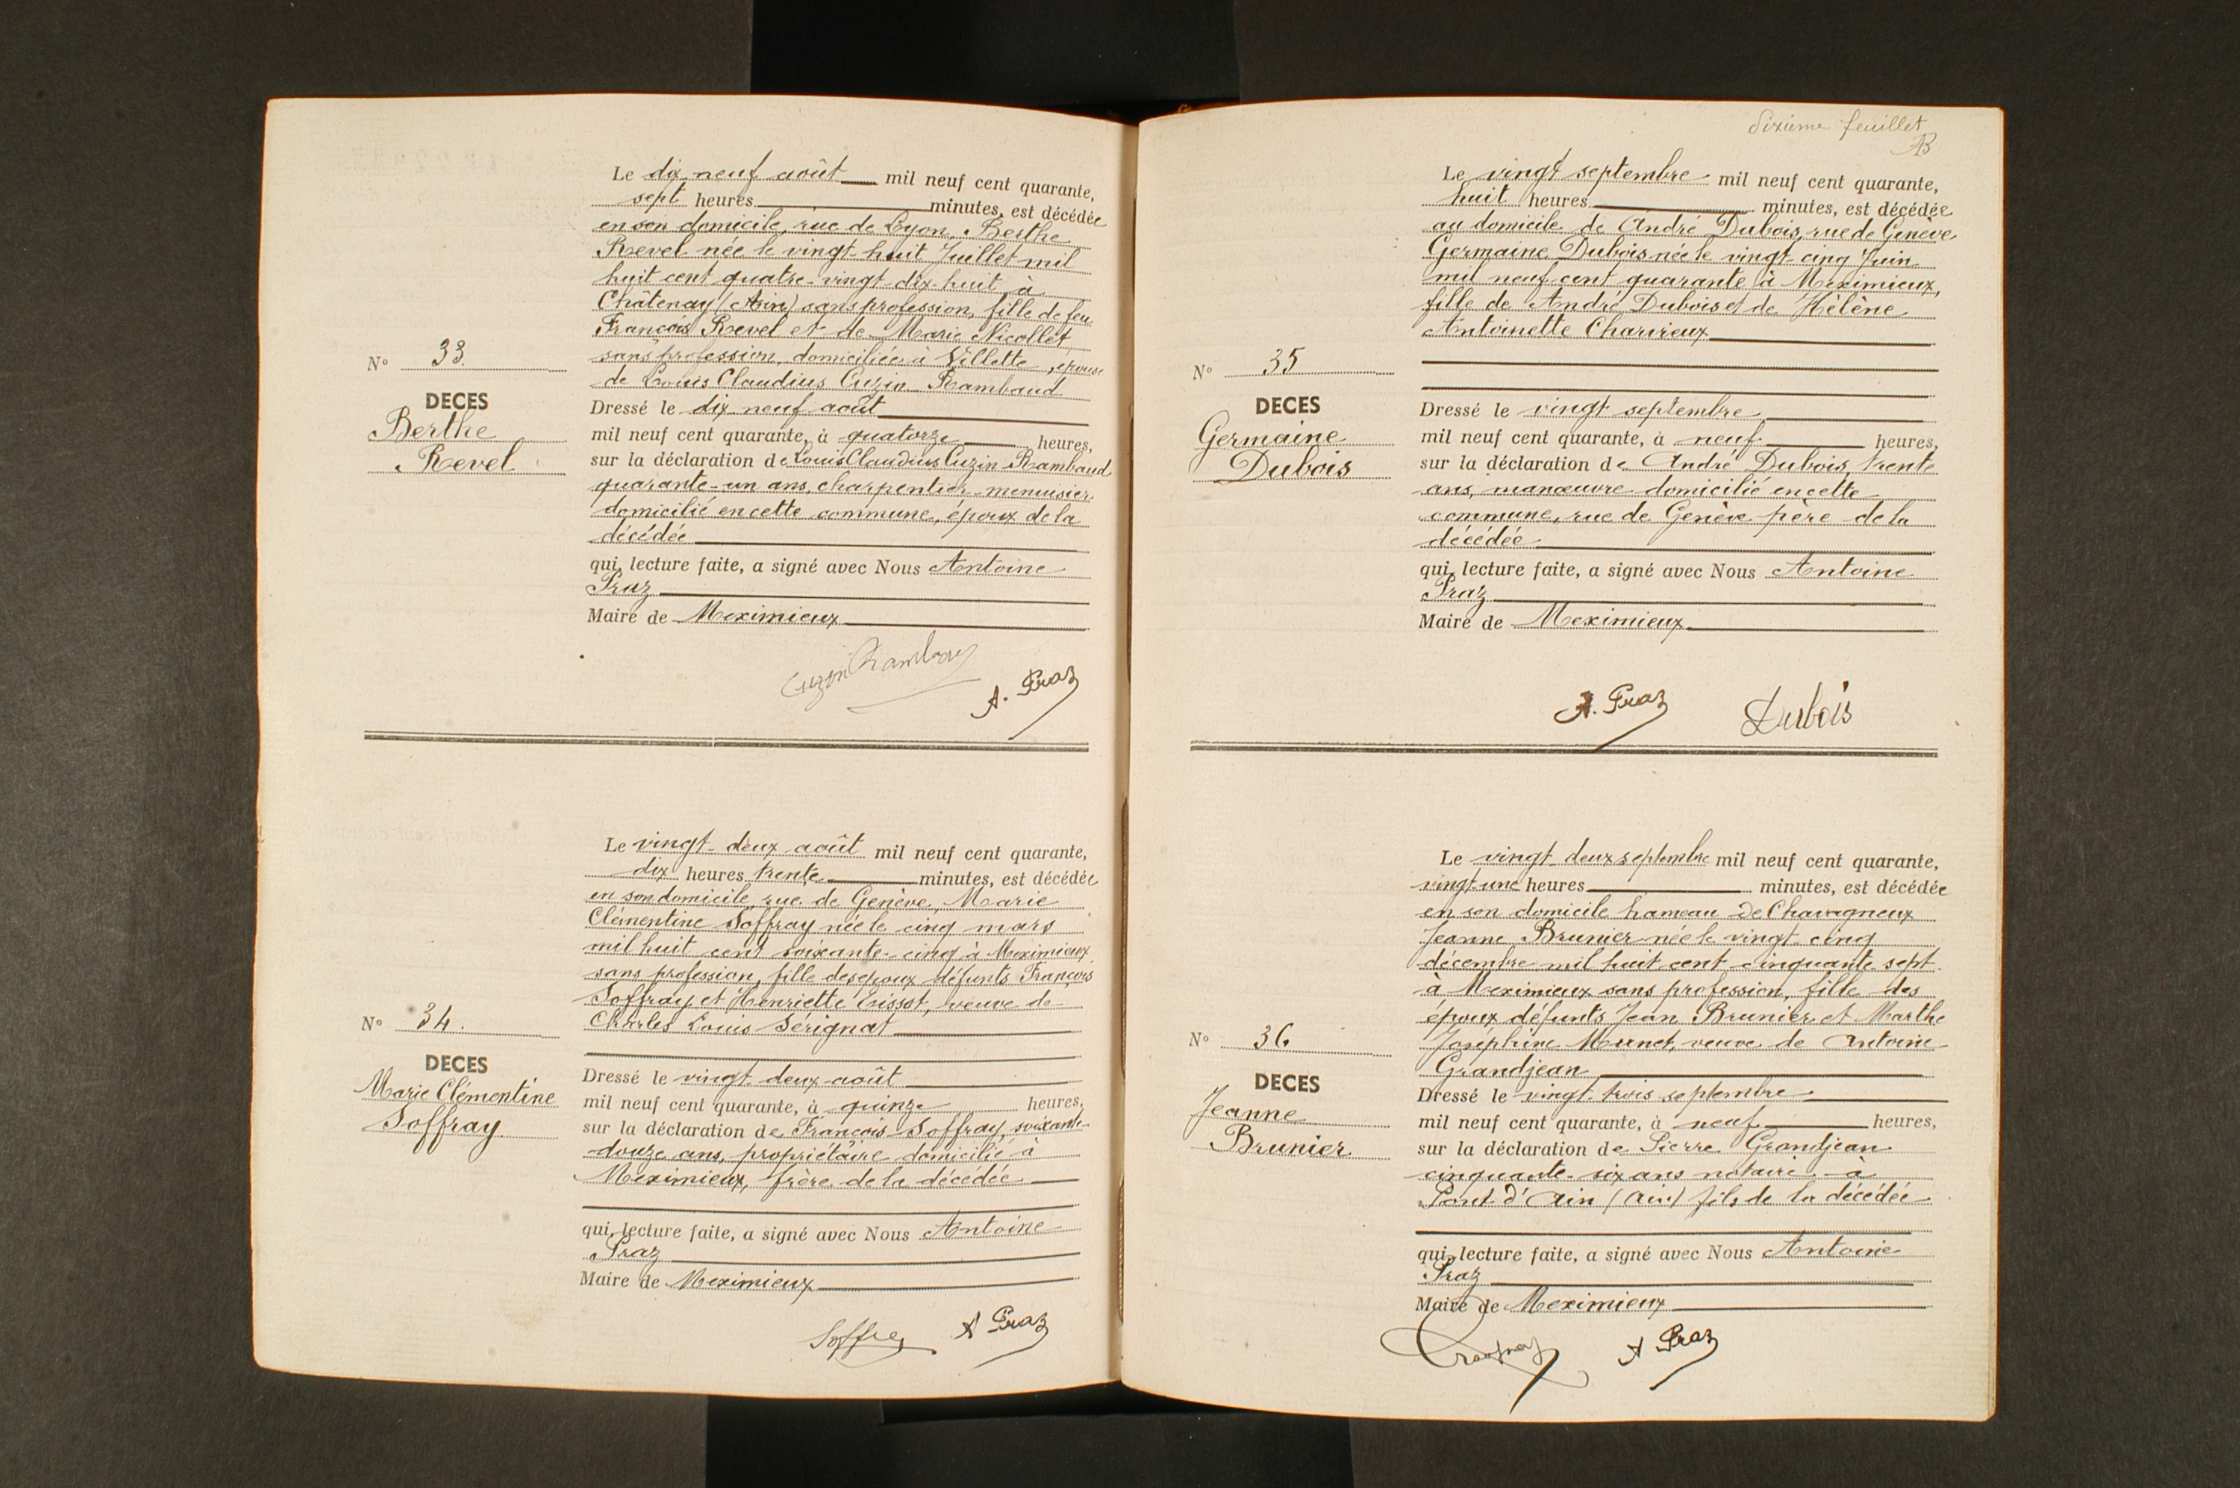 Le dix neuf août mil neuf cent quarante,
sept heures minutes, est décédée
en son domicile, rue de Lyon, Berthe
Revel née le vingt-huit Juillet mil
huit cent quatre-vingt-dix-huit à
Châtenay (Ain) sans profession, fille de feu
François Revel et de Marie Nicollet
sans profession, domiciliée à Villette, épouse
de Louis Claudius Cuzin Rambaud
N° 33.
DECES
Berthe
Revel
Dressé le dix neuf août
mil neuf cent quarante, à quatorze heures,
sur la déclaration de Louis Claudius Cuzin Rambaud
quarante-un ans, charpentier-menuisier
domicilié en cette commune, époux de la
décédée
qui, lecture faite, a signé avec Nous Antoine
Praz
Maire de Meximieux
Cuzin Rambaud
A. Praz
Le vingt-deux août mil neuf cent quarante,
dix heures trente minutes, est décédée
en son domicile, rue de Genève, Marie
Clémentine Soffray née le cinq mars
mil huit cent soixante-cinq à Meximieux
sans profession, fille des époux défunts François
Soffray et Henriette Tissot, veuve de
Charles Louis Sérignat
N° 34.
DECES
Marie Clémentine
Soffray
Dressé le vingt-deux août
mil neuf cent quarante, à quinze heures,
sur la déclaration de François Soffray, soixante-
douze ans, propriétaire domicilié à
Meximieux, frère de la décédée
qui, lecture faite, a signé avec Nous Antoine
Praz
Maire de Meximieux
A Praz
Sixième feuillet
Le vingt septembre mil neuf cent quarante,
huit heures minutes, est décédée
au domicile de André Dubois, rue de Genève
Germaine Dubois née le vingt cinq Juin
mil neuf cent quarante à Meximieux,
fille de André Dubois et de Hélène
Antoinette Charvieux
N° 35
DECES
Germaine
Dubois
Dressé le vingt septembre
mil neuf cent quarante, à neuf heures,
sur la déclaration de André Dubois, trente
ans, manœuvre domicilié en cette
commune, rue de Genève père de la
décédée
qui, lecture faite, a signé avec Nous Antoine
Praz
Maire de Meximieux
A. Praz
Dubois
Le vingt-deux septembre mil neuf cent quarante,
vingt-une heures minutes, est décédée
en son domicile hameau de Chavagneux
Jeanne Brunier née le vingt-cinq
décembre mil huit cent cinquante sept
à Meximieux sans profession, fille des
époux défunts Jean Brunier et Marthe
Joséphine Munet, veuve de Antoine
Grandjean
N° 36
DECES
Jeanne
Brunier
Dressé le vingt-trois septembre
mil neuf cent quarante, à neuf heures,
sur la déclaration de Pierre Grandjean
cinquante-six ans notaire à
Pont d'Ain (Ain) fils de la décédée
qui, lecture faite, a signé avec Nous Antoine
Praz
Maire de Meximieux
A Praz